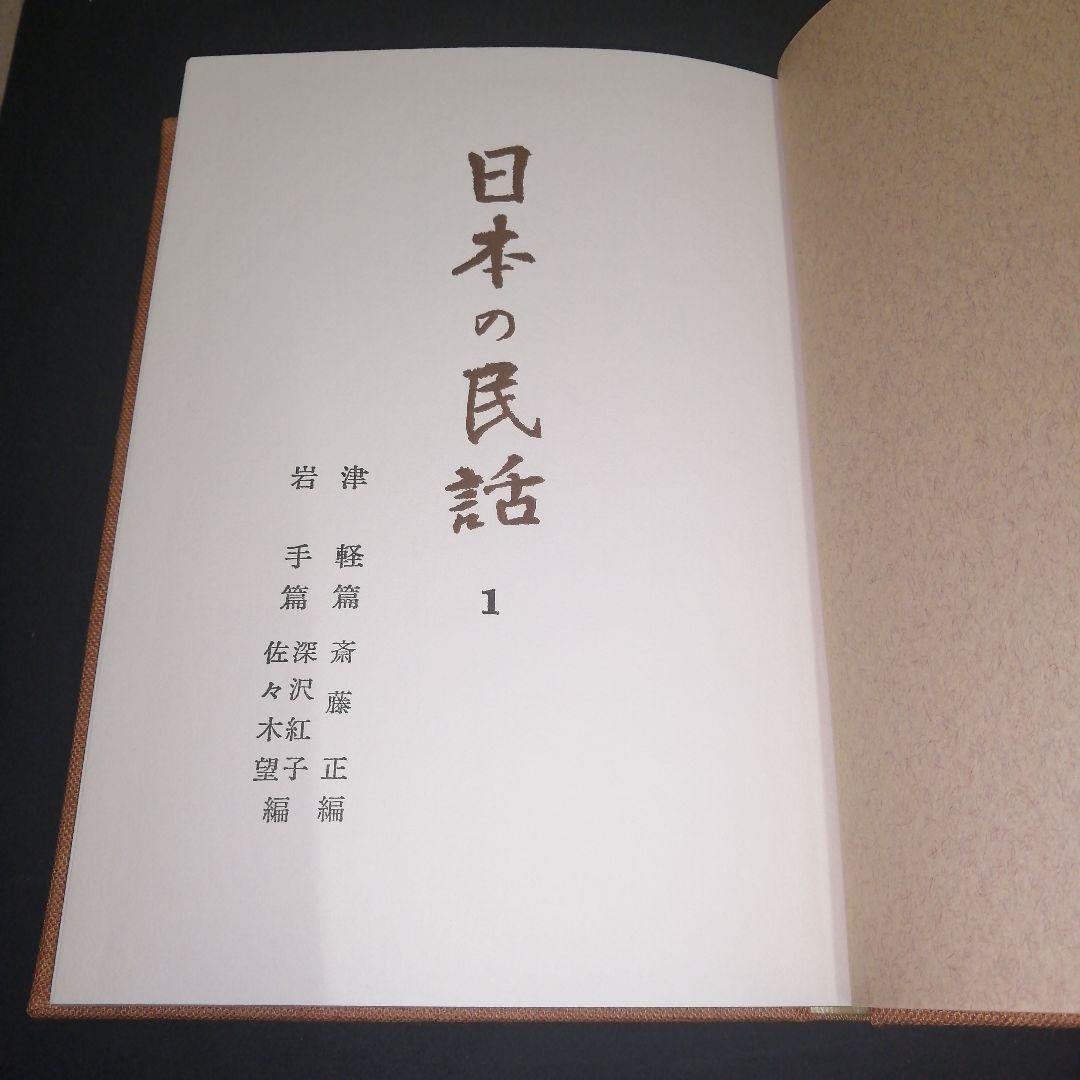 日本の民話
1
津軽篇 斎藤正編
岩手篇 深沢紅子 佐々木望編